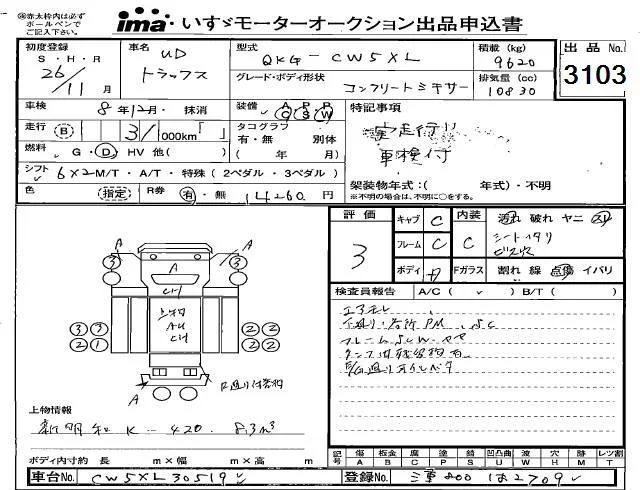 ㊟赤太枠内は必ず
ボールペンで
ご記入下さい。
ima いすゞモーターオークション出品申込書
初度登録 S・H・R 26/11 月
車名 UD トラックス
型式 QKG-CW5XL
積載 (kg) 9620
出品No. 3103
グレード・ボディ形状 コンクリートミキサー
排気量 (cc) 10830
車検 8年12月・抹消
装備 A P P C S W
特記事項
走行 B 31,000km「 」
タコグラフ 有・無 別体 ( 年 月)
実走行
車検付
燃料 G・D・HV 他( )
シフト 6×2 M/T・A/T・特殊 (2ペダル・3ペダル)
架装物年式:( 年式)・不明
※不明の場合は、不明に○をする。
色 (指定) R券 有・無 14260 円
評価 3
キャブ C 内装 C
汚れ 破れ ヤニ スリ
シートヘタリ
ビス穴
フレーム C
ボディ Fガラス 割れ 線 点傷 イバリ
A A
3 3
CH
上物
AU
CH
3 3 2 2
2 1 2 2
A A
検査員報告 A/C( ✓ ) B/T( )
エアモレ
フレームSCW.
上物情報
新明和 K-420 8.3m³
ボディ内寸約 長 m×幅 m×高 m
記号 傷 A 板金 B 腐 C 塗 P 錆 S 凹凸曲 U 波 W 穴 H 跡 M レツ割 T
車台No. CW5XL30519
登録No. 三重 800 は 2709